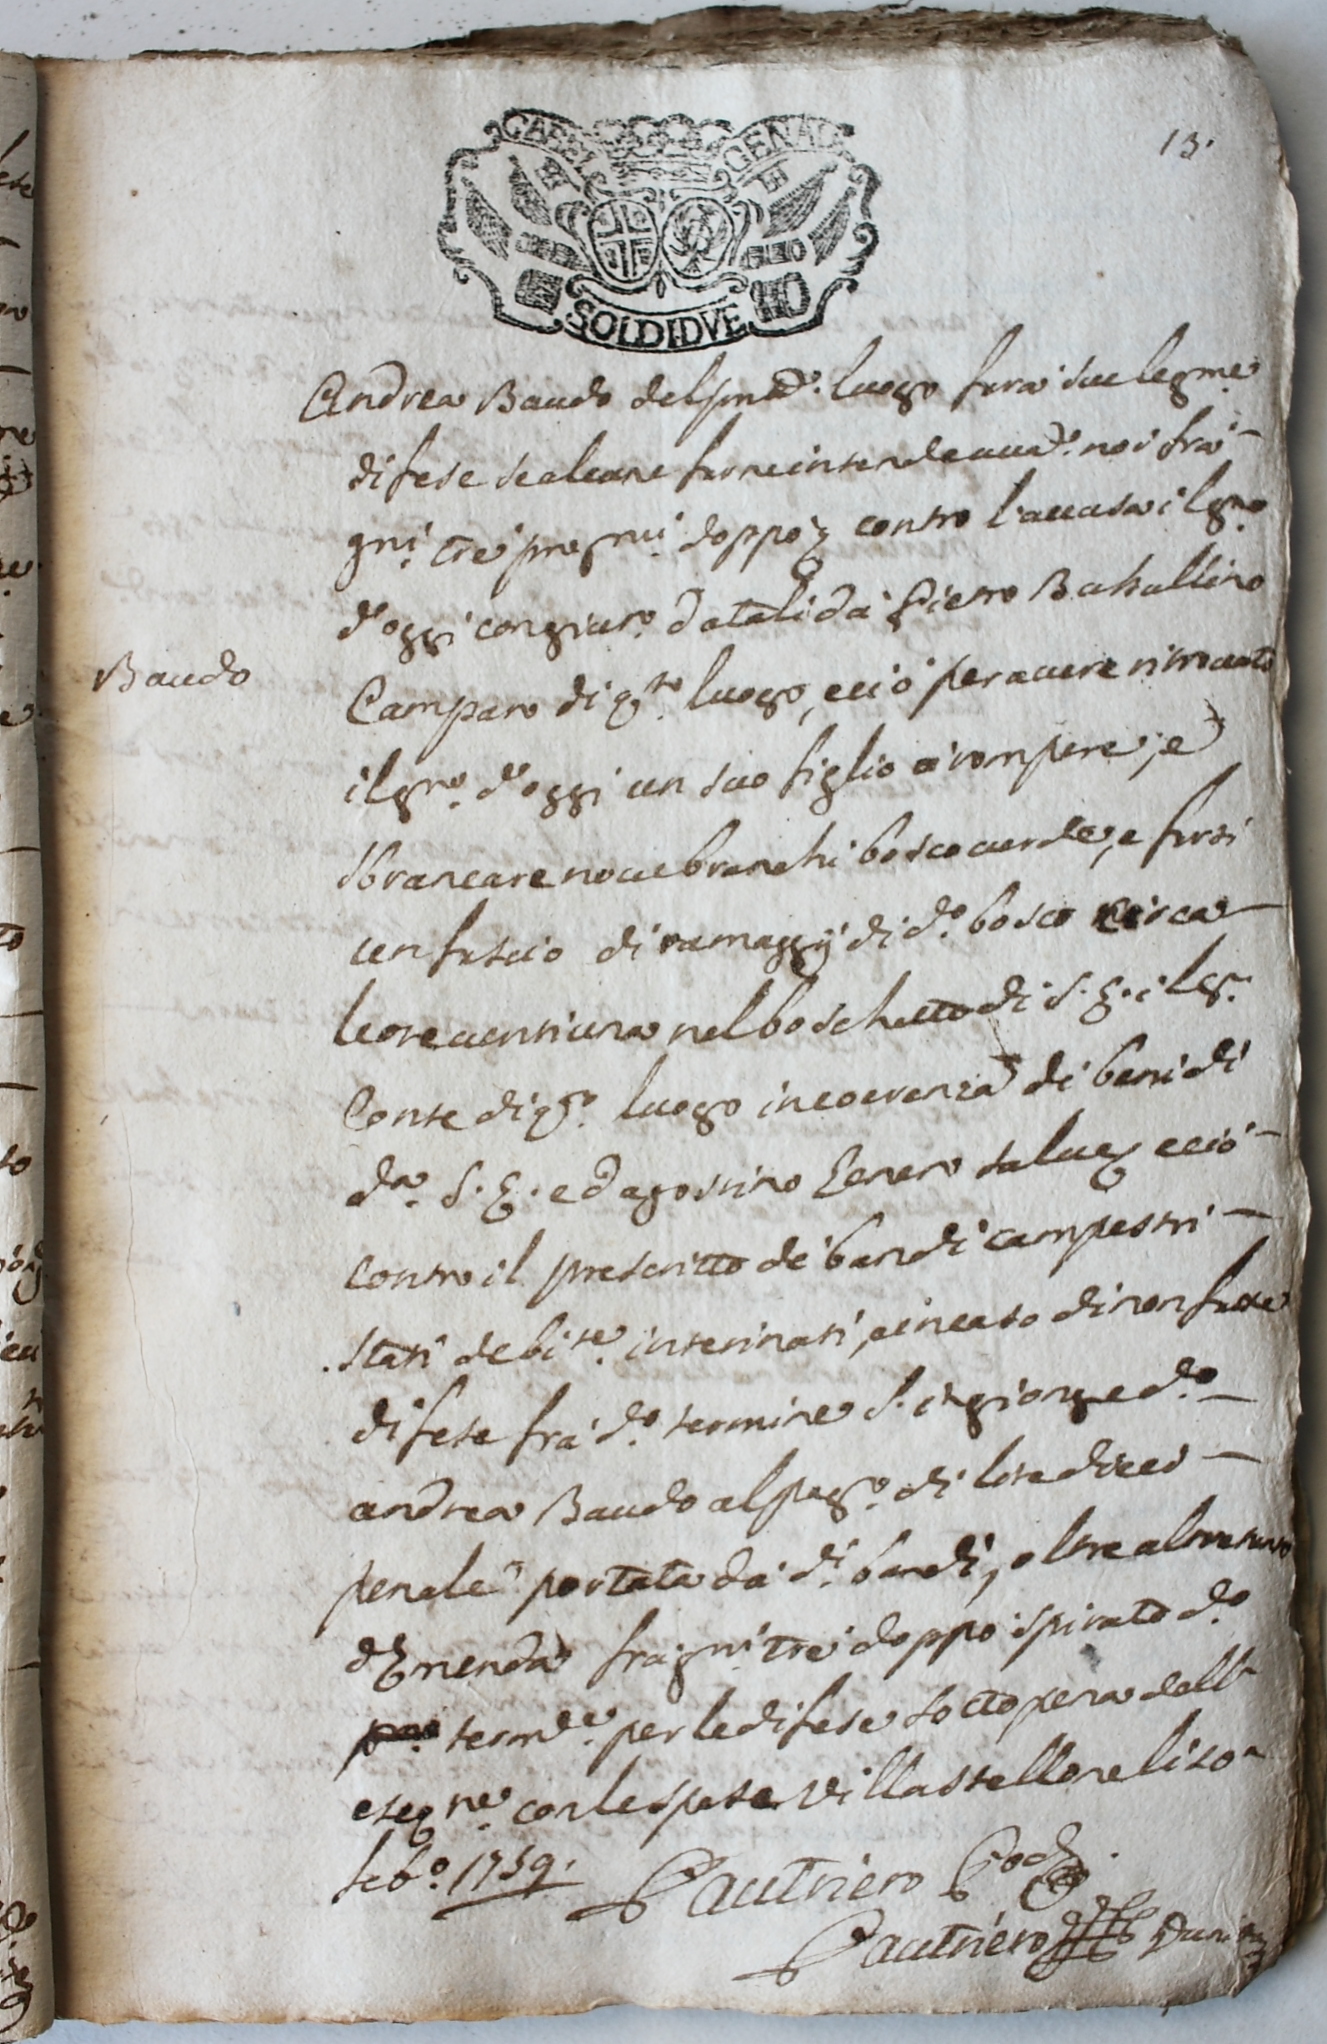 13.
GENAL
SOLDI DVE
Andrea Baudo del luogo farà sue legme
difese se alcune farne intende avad.e noi frà
gni. tré doppo contro l'accusa il gno
d'oggi congiur.o datali da Pietro
Baudo
Camparo di q.to luogo, e ciò per avere ritrovato
il gno. d'oggi un suo figlio a rompere, e
sbrancare nove branchi bosco verde, e farsi
un fascio di ramaggij di d.o bosco circa
le ore ventiuna nel boschetto di S. E. il Sig.r
Conte di q.to luogo in coerenza di beni di
d.a S. E. ed agostino e ciò
contro il prescritto de bandi campestri
stati debi.te interinati, e in caso di non fatte
difese frà d.o termine S. ingionge d.o
andrea Baudo al pag.o di lire dieci
penale portata da d.i bandi, oltre
d'Emenda frà gni. tré doppo spirato d.o
term.e per le difese sotto pena dell'
con le spese Villastellone li 20
feb.o 1759.
Cautriero
Cautriero